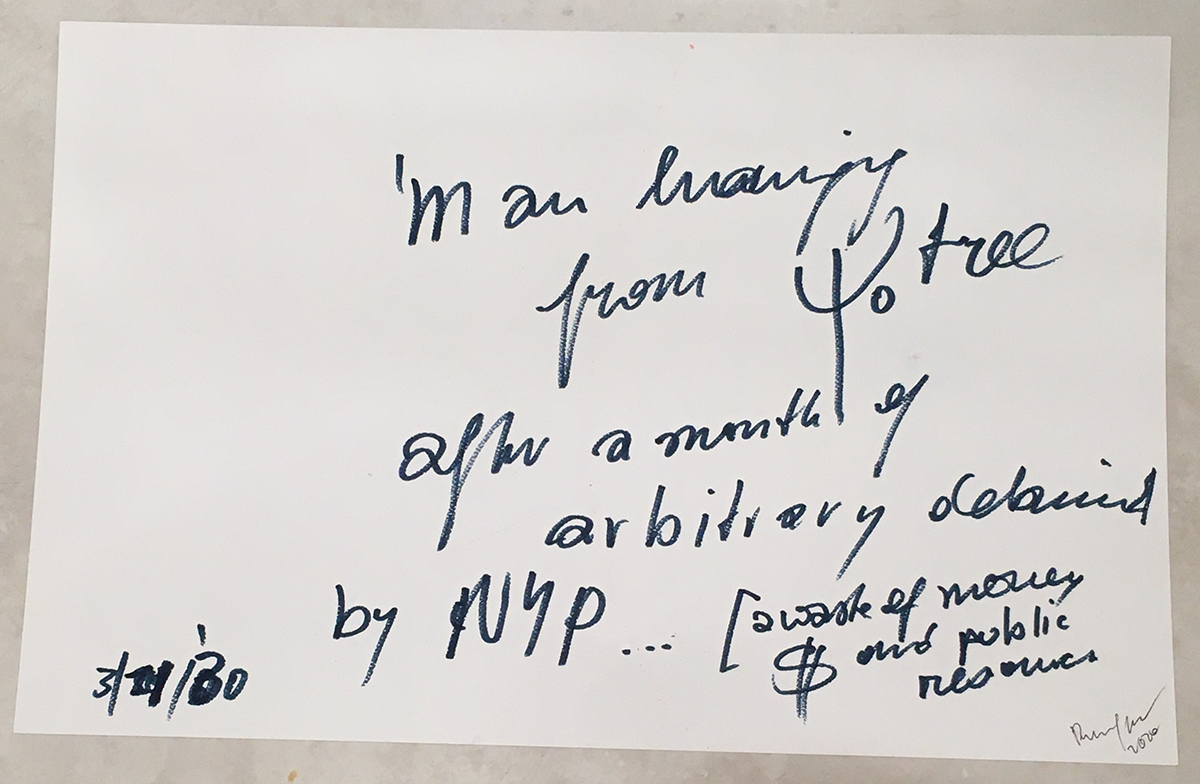 from ψ₀ tree
after a month of
arbitrary detained
by NYP ... [a waste of money
$ and public
resources
3/ /'80
2020